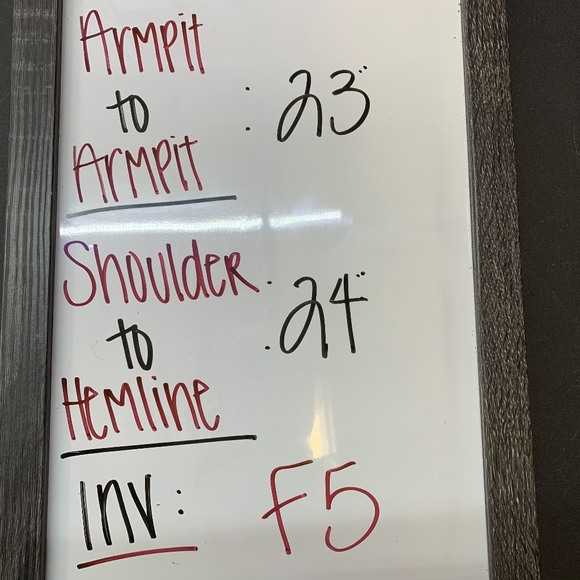 Armpit
to : 23"
Armpit
Shoulder
to : 24"
Hemline
Inv: F5